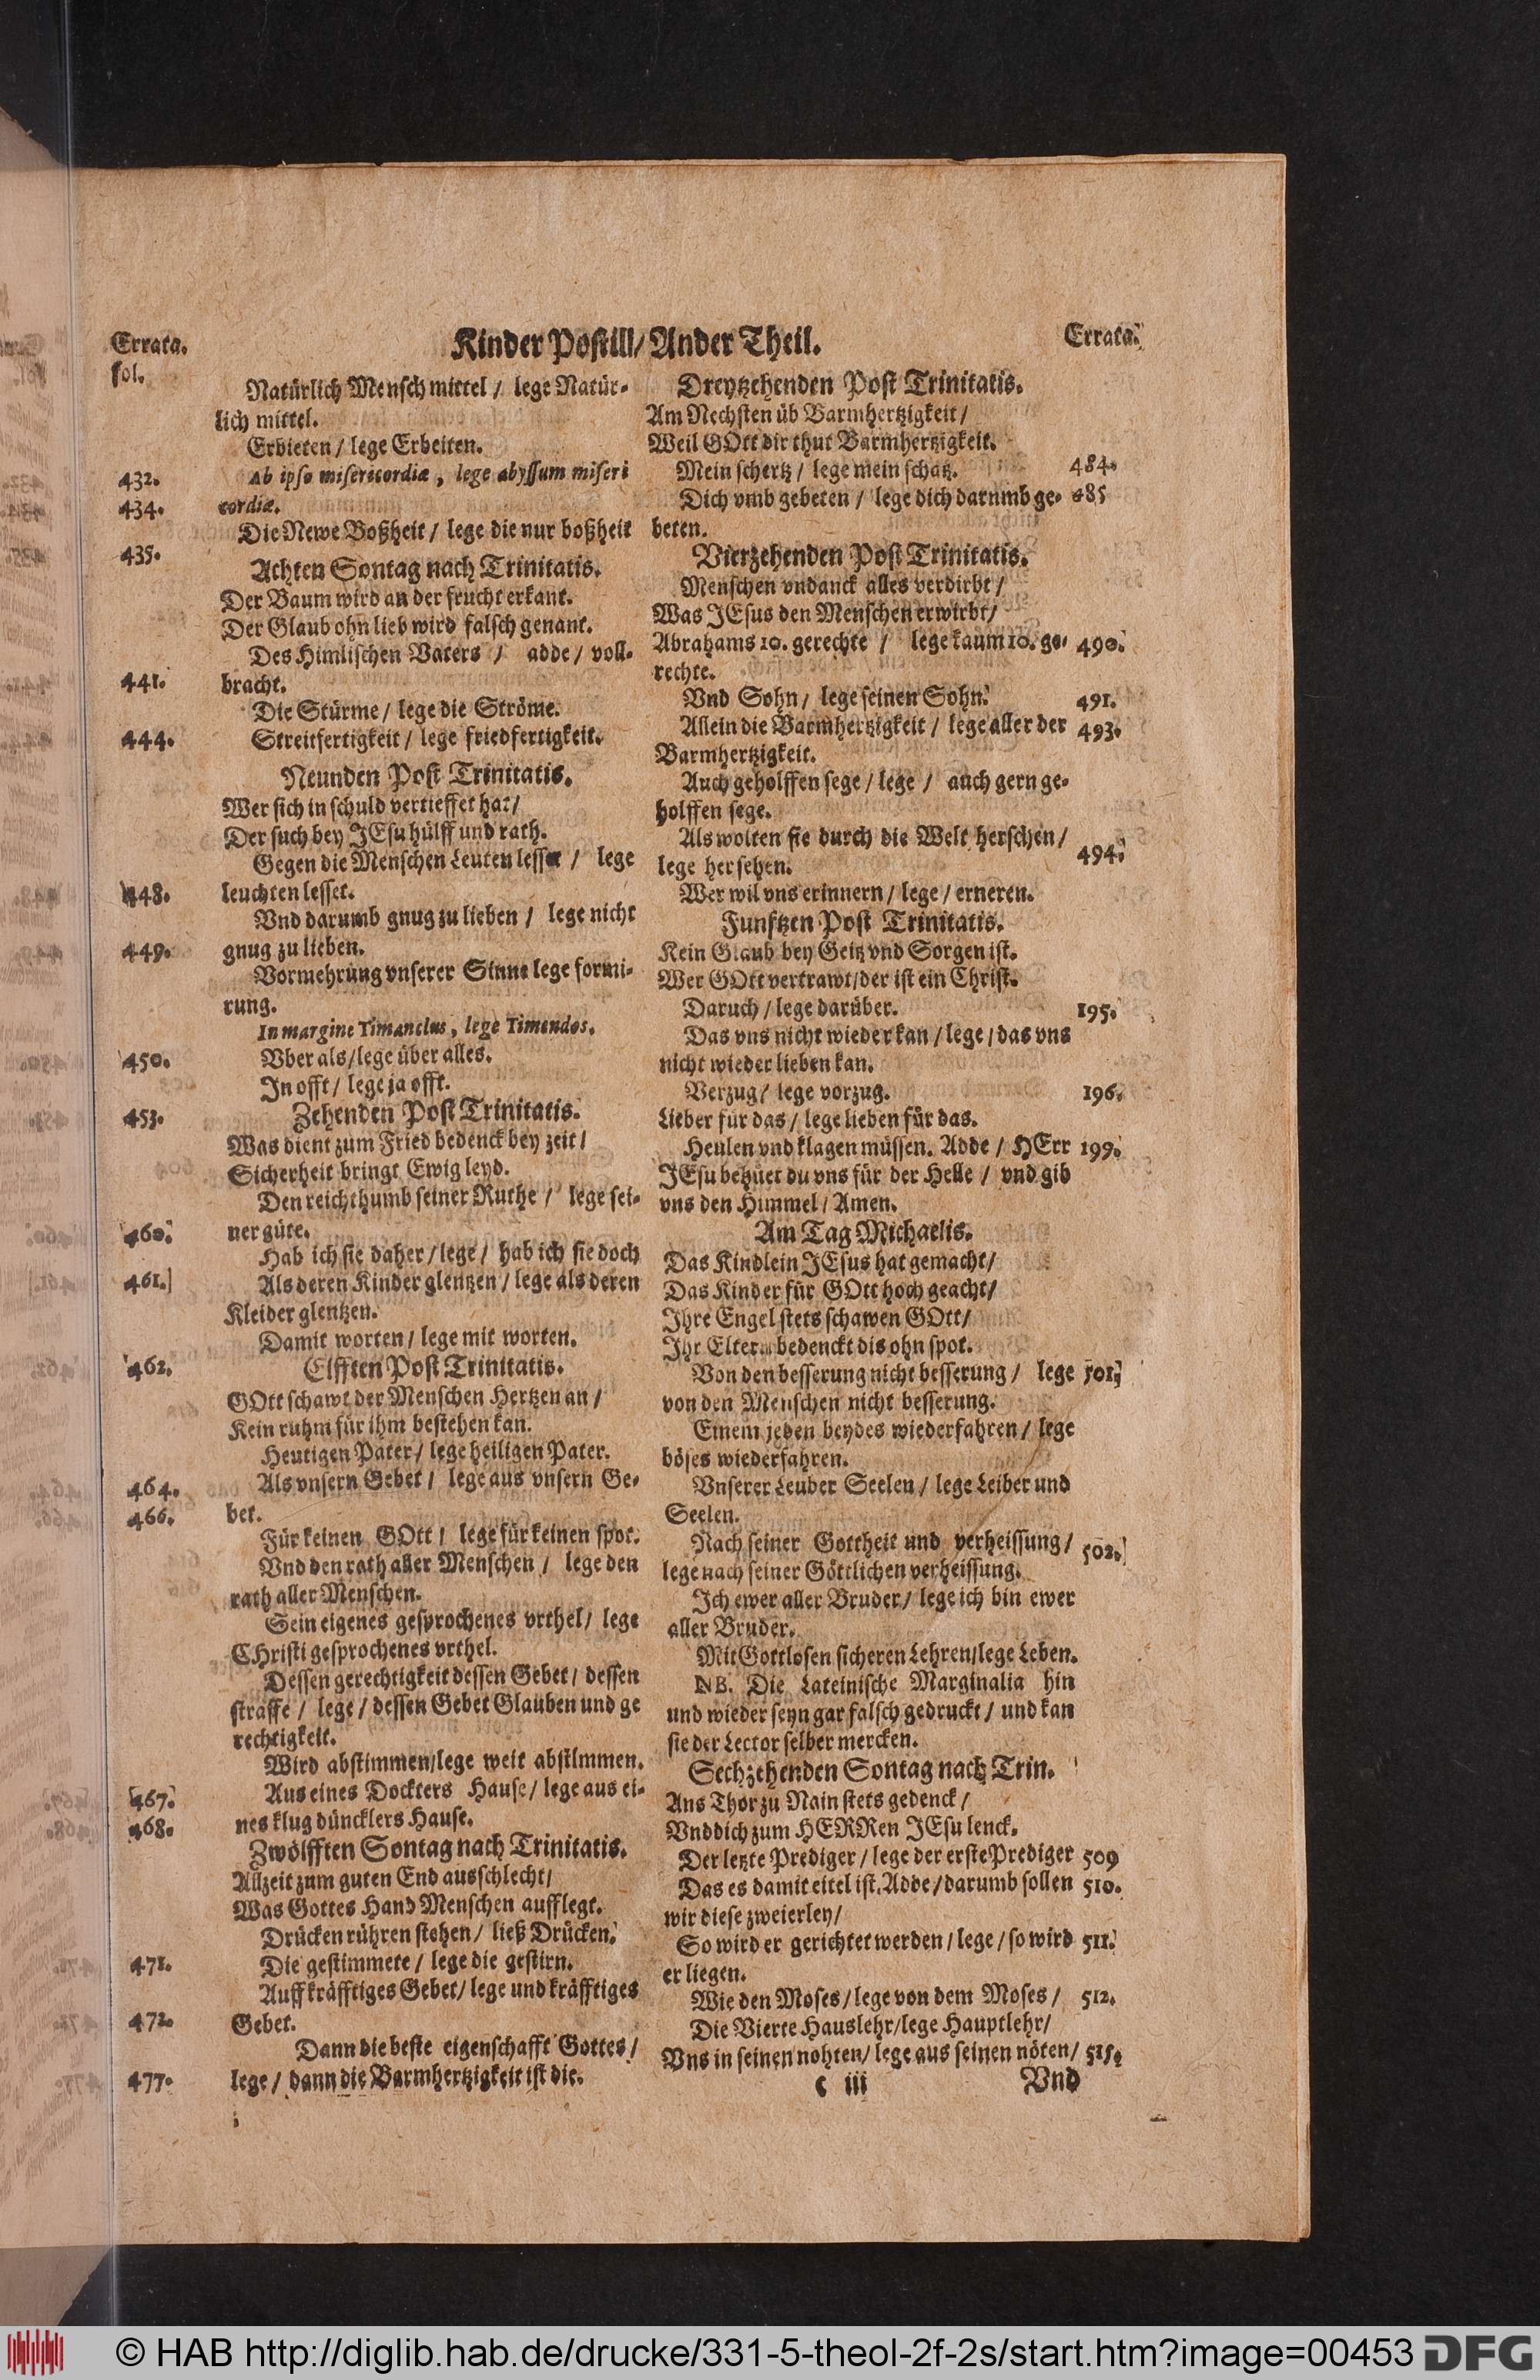 Errata.
fol.
Kinder Postill/Ander Theil.
Errata.
Natürlich Mensch mittel / lege Natür-
lich mittel.
Erbieten / lege Erbeiten.
432. Ab ipso misericordiæ, lege abyssum miseri
434. cordiæ.
Die Newe Boßheit / lege die nur boßheit
435.
Achten Sontag nach Trinitatis.
Der Baum wird an der frucht erkant.
Der Glaub ohn lieb wird falsch genant.
Des Himlischen Vaters / adde / voll-
441. bracht.
Die Stürme / lege die Ströme.
444. Streitfertigkeit / lege friedfertigkeit.
Neunden Post Trinitatis.
Wer sich in schuld vertieffet hat /
Der such bey JEsu hülff und rath.
Gegen die Menschen Leuten lesset / lege
448. leuchten lesset.
Vnd darumb gnug zu lieben / lege nicht
449. gnug zu lieben.
Vormehrung vnserer Sinne lege formi-
rung.
In margine Timanclus, lege Timendos.
450. Vber als/lege über alles.
In offt / lege ja offt.
453. Zehenden Post Trinitatis.
Was dient zum Fried bedenck bey zeit /
Sicherheit bringt Ewig leyd.
Den reichthumb seiner Ruthe / lege sei-
460. ner güte.
Hab ich sie daher / lege / hab ich sie doch
461. Als deren Kinder glentzen / lege als deren
Kleider glentzen.
Damit worten / lege mit worten.
462. Eilfften Post Trinitatis.
GOtt schawt der Menschen Hertzen an /
Kein ruhm für ihm bestehen kan.
Heutigen Pater / lege heiligen Pater.
464. Als vnsern Gebet / lege aus vnsern Ge-
466. bet.
Für keinen GOtt / lege für keinen spot.
Vnd den rath aller Menschen / lege den
rath aller Menschen.
Sein eigenes gesprochenes vrthel / lege
CHristi gesprochenes vrthel.
Dessen gerechtigkeit dessen Gebet / dessen
straffe / lege / dessen Gebet Glauben und ge
rechtigkeit.
Wird abstimmen/lege weit abstimmen.
467. Aus eines Dockters Hause / lege aus ei-
468. nes klug düncklers Hause.
Zwölfften Sontag nach Trinitatis.
Allzeit zum guten End ausschlecht /
Was Gottes Hand Menschen aufflegt.
Drücken rühren stehen / ließ Drücken.
471. Die gestimmete / lege die gestirn.
Auff kräfftiges Gebet / lege und kräfftiges
472. Gebet.
Dann die beste eigenschafft Gottes /
477. lege / dann die Barmhertzigkeit ist die.
Dreytzehenden Post Trinitatis.
Am Nechsten üb Barmhertzigkeit /
Weil GOtt dir thut Barmhertzigkeit.
Mein schertz / lege mein schatz. 484.
Dich vmb gebeten / lege dich darumb ge- 485
beten.
Vierzehenden Post Trinitatis.
Menschen vndanck alles verdirbt /
Was JEsus den Menschen erwirbt /
Abrahams 10. gerechte / lege kaum 10. ge- 490.
rechte.
Vnd Sohn / lege seinen Sohn. 491.
Allein die Barmhertzigkeit / lege aller der 493.
Barmhertzigkeit.
Auch geholffen sege / lege / auch gern ge-
holffen sege.
Als wolten sie durch die Welt herschen / 494.
lege her sehen.
Wer wil vns erinnern / lege / erneren.
Funfftzen Post Trinitatis.
Kein Glaub bey Geitz vnd Sorgen ist.
Wer GOtt vertrawt/der ist ein Christ.
Daruch / lege darüber. 195.
Das vns nicht wieder kan / lege / das vns
nicht wieder lieben kan.
Verzug / lege vorzug. 196.
Lieber für das / lege lieben für das.
Heulen vnd klagen müssen. Adde / HErr 199.
JEsu behüet du vns für der Helle / vnd gib
vns den Himmel / Amen.
Am Tag Michaelis.
Das Kindlein JEsus hat gemacht /
Das Kinder für GOtt hoch geacht /
Ihre Engel stets schawen GOtt /
Ihr Eltern bedenckt dis ohn spot.
Von den besserung nicht besserung / lege 501.
von den Menschen nicht besserung.
Einem jeden beydes wiederfahren / lege
böses wiederfahren.
Vnserer Leuber Seelen / lege Leiber und
Seelen.
Nach seiner Gottheit und verheissung / 502.
lege nach seiner Göttlichen verheissung.
Ich ewer aller Bruder / lege ich bin ewer
aller Bruder.
Mit Gottlosen sicheren Lehren/lege Leben.
NB. Die Lateinische Marginalia hin
und wieder seyn gar falsch gedruckt / und kan
sie der Lector selber mercken.
Sechzehenden Sontag nach Trin.
Ans Thor zu Nain stets gedenck /
Vnd dich zum HERRen JEsu lenck.
Der letzte Prediger / lege der erste Prediger 509
Das es damit eitel ist. Adde / darumb sollen 510.
wir diese zweierley /
So wird er gerichtet werden / lege / so wird 511.
er liegen.
Wie den Moses / lege von dem Moses / 512.
Die Vierte Hauslehr/lege Hauptlehr /
Vns in seinen nohten / lege aus seinen nöten / 515.
c iii Vnd
© HAB http://diglib.hab.de/drucke/331-5-theol-2f-2s/start.htm?image=00453 DFG